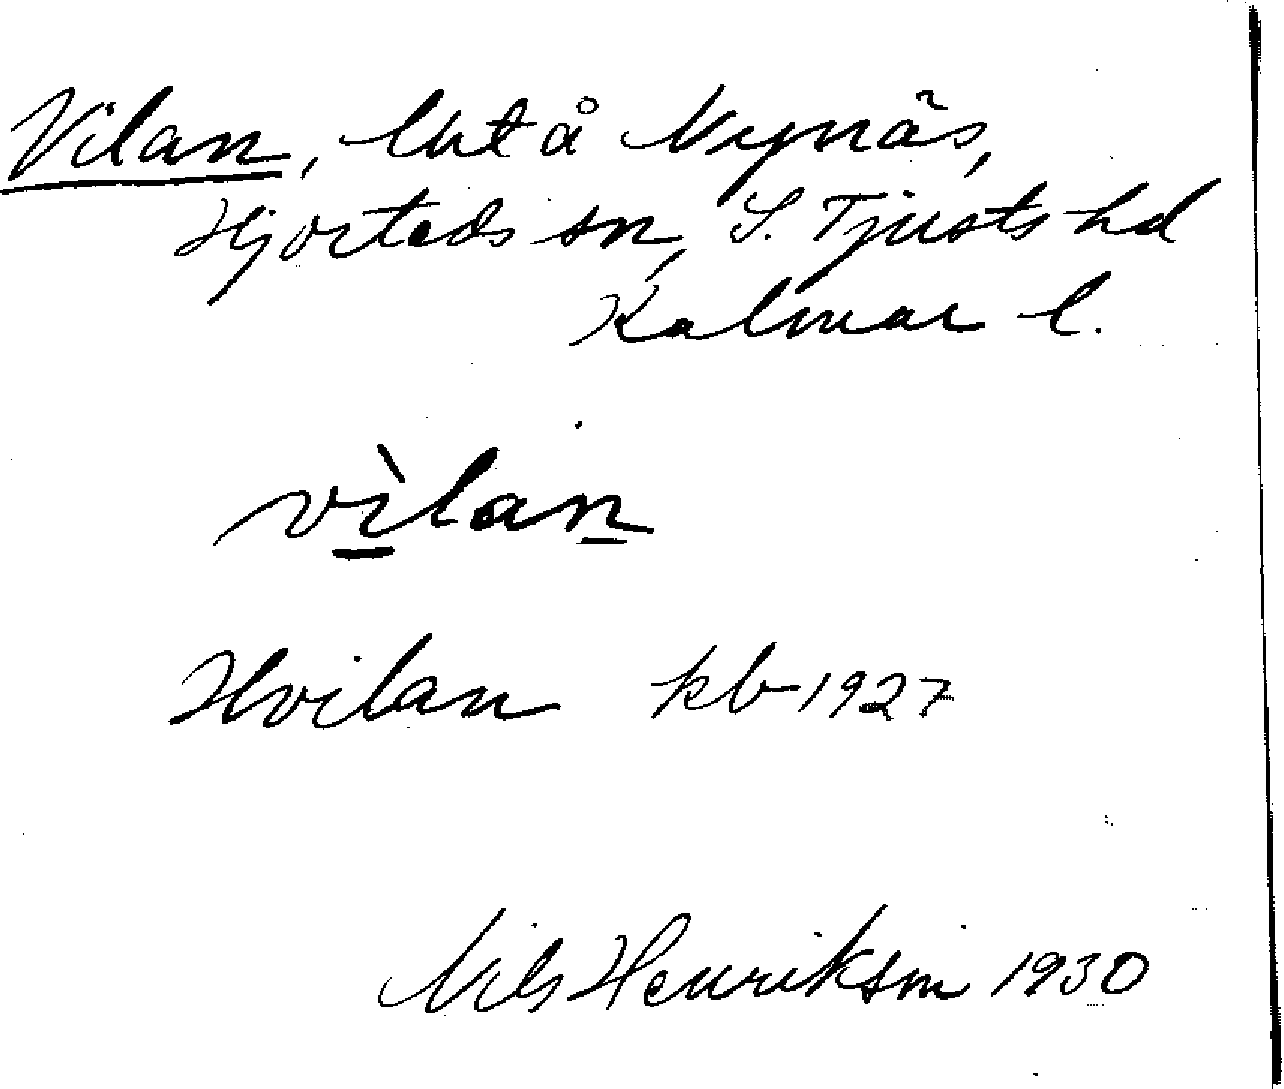 Vilan, lht å Nynäs,
Hjorteds sn, S. Tjusts hd
Kalmar l.
vìlan
Hvilan kb 1927
Nils Henrikson 1930